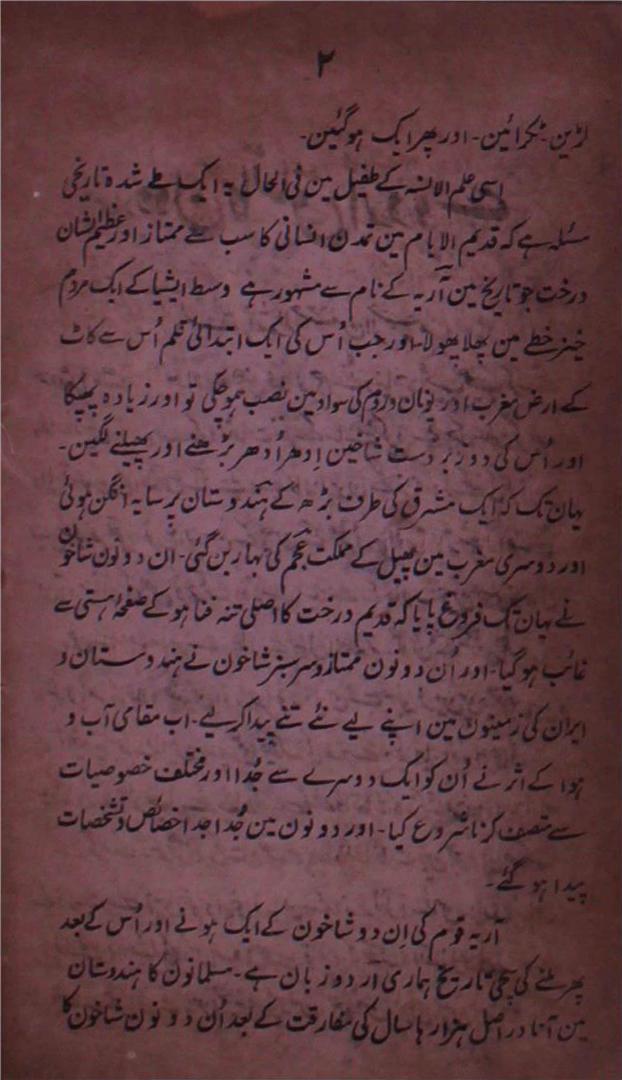 ۲
لڑین۔ ٹکرائین۔ اور پھر ایک ہوگئین۔
اسی علم الالسنہ کے طفیل مین فی الحال یہ ایک طے شدہ تاریخی
مسئلہ ہے کہ قدیم الایام مین تمدن انسانی کا سب سے ممتاز اور عظیم الشان
درخت جو تاریخ مین آریہ کے نام سے مشہور ہے وسط ایشیا کے ایک مردم
خیز خطے مین پھلا پھولا۔ اور جب اُس کی ایک ابتدائی قلم اُس سے کاٹ
کے ارض مغرب اور یونان و روم کی سواد مین نصب ہوچکی تو اور زیادہ پھپکا
اور اُس کی دو زبردست شاخین اِدھر اُدھر بڑھنے اور پھیلنے لگین۔
یہان تک کہ ایک مشرق کی طرف بڑھ کے ہندوستان پر سایہ افگن ہوئی
اور دوسری مغرب مین پھیل کے مملکت عجم کی بہار بن گئی۔ ان دونون شاخون
نے یہان تک فروغ پایا کہ قدیم درخت کا اصلی تنہ فنا ہو کے صفحۂ ہستی سے
غائب ہوگیا۔ اور اُن دونون ممتاز و سرسبز شاخون نے ہندوستان و
ایران کی زمینون مین اپنے لیے نئے تنے پیدا کر لیے۔ اب مقامی آب و
ہوا کے اثر نے اُن کو ایک دوسرے سے جُدا اور مختلف خصوصیات
سے متصف کرنا شروع کیا۔ اور دونون مین جُدا جدا خصائص و تشخصات
پیدا ہوگئے۔
آریہ قوم کی اِن دو شاخون کے ایک ہونے اور اُس کے بعد
پھر ملنے کی سچی تاریخ ہماری اُردو زبان ہے۔ مسلمانون کا ہندوستان
مین آنا در اصل ہزارہا سال کی مفارقت کے بعد اُن دونون شاخون کا